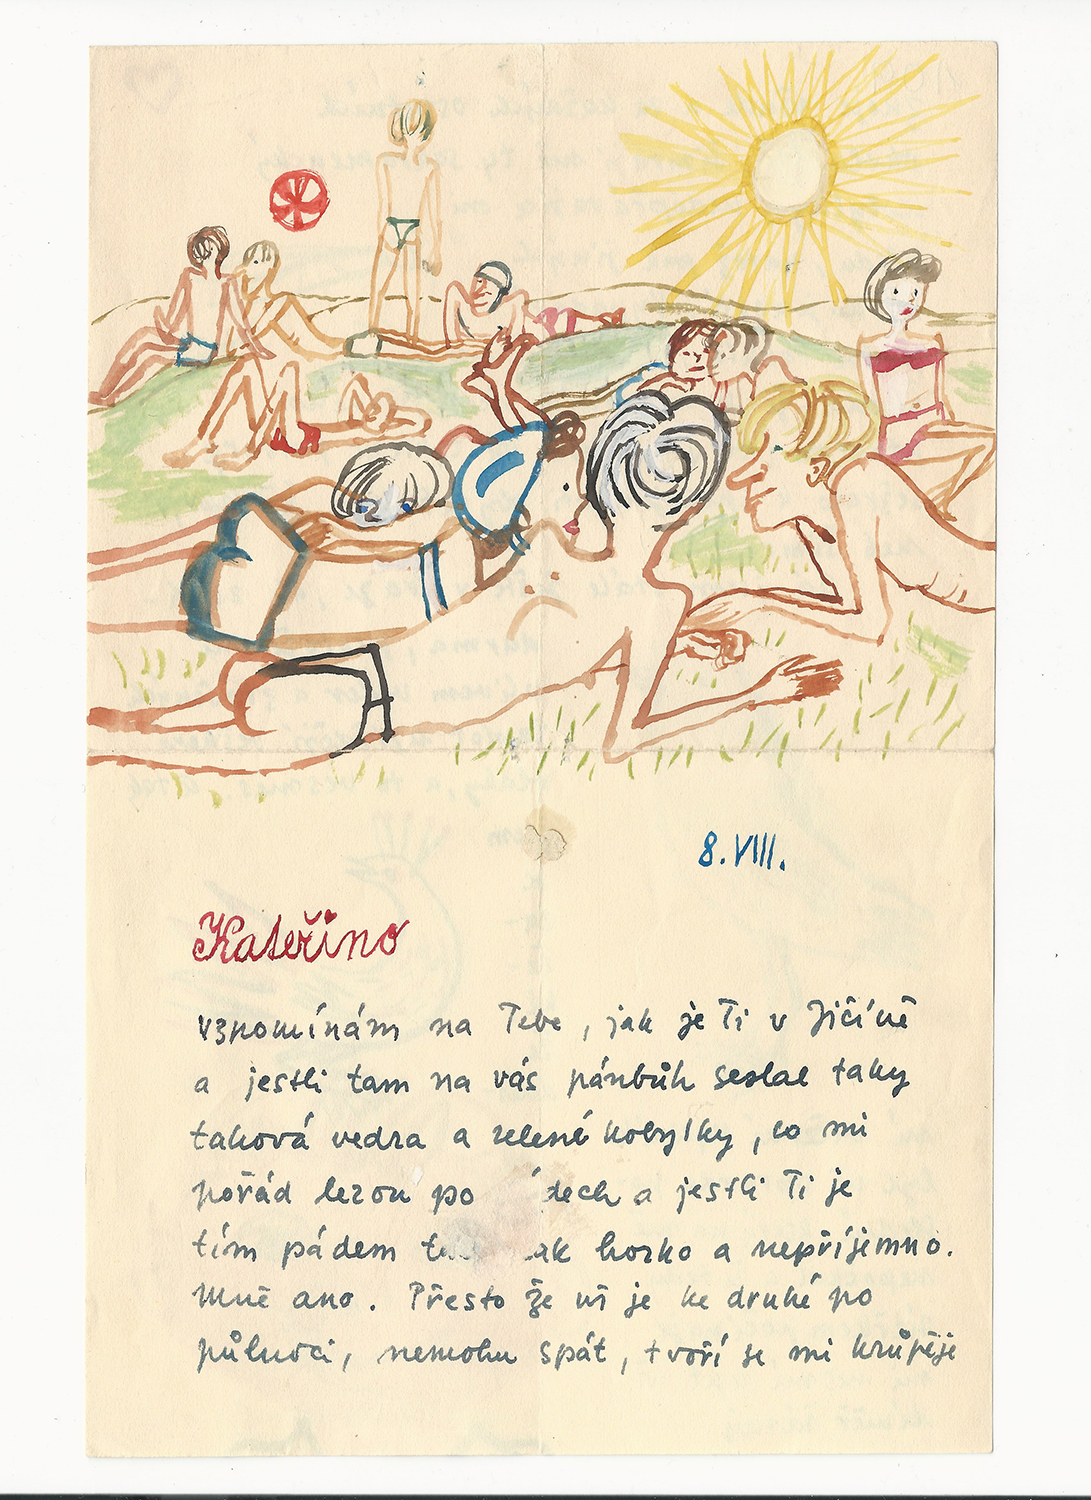 8.VIII.
Kateřino
vzpomínám na Tebe, jak je Ti v Jičíně
a jestli tam na vás pánbůh seslal taky
taková vedra a zelené kobylky, co mi
pořád lezou po dech a jestli Ti je
tím pádem tak horko a nepříjemno.
Mně ano. Přesto že už je ke druhé po
půlnoci, nemohu spát, tvoří se mi krůpěje